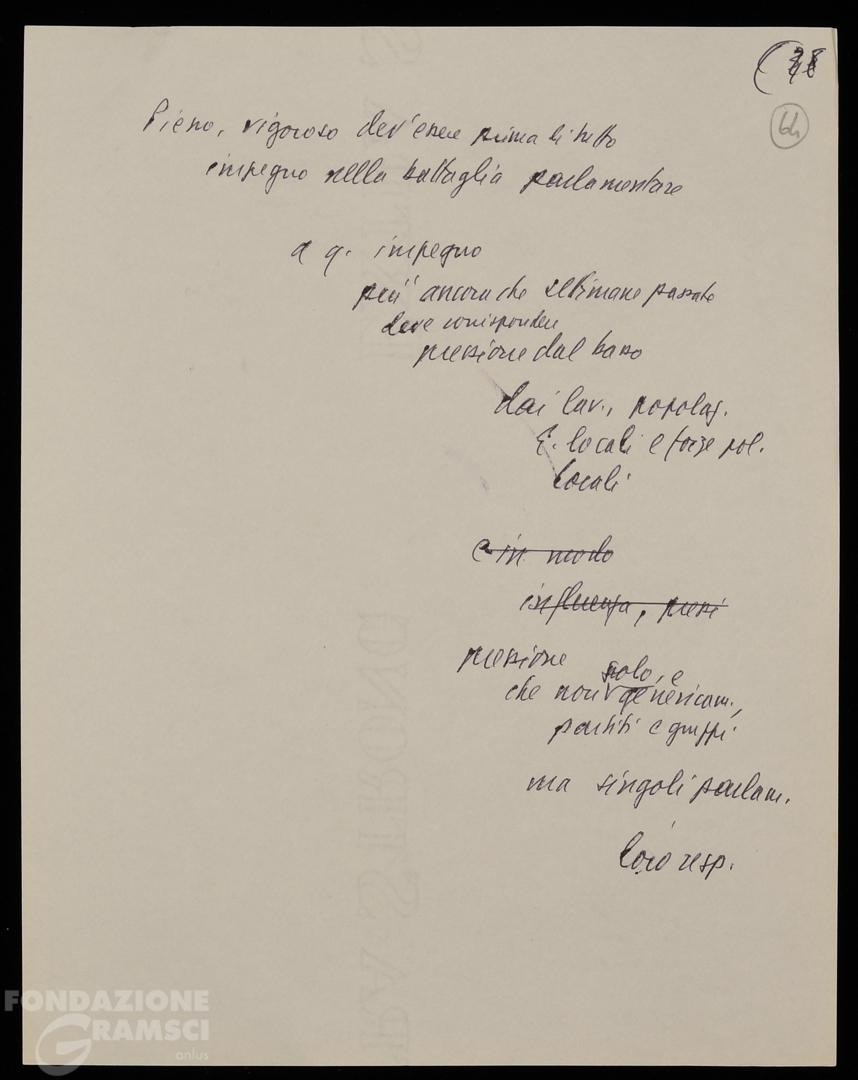 64
Pieno, vigoroso dev'essere prima di tutto
impegno nella battaglia parlamentare
a q. impegno
più ancora che settimane passate
deve corrispondere
pressione dal basso
dai lav., popolaz.
E. locali e forze pol.
locali
e in modo
influenza, pressi
pressione
solo, e
che non genericam.,
partiti e gruppi
ma singoli parlam.
loro resp.
FONDAZIONE
GRAMSCI
onlus